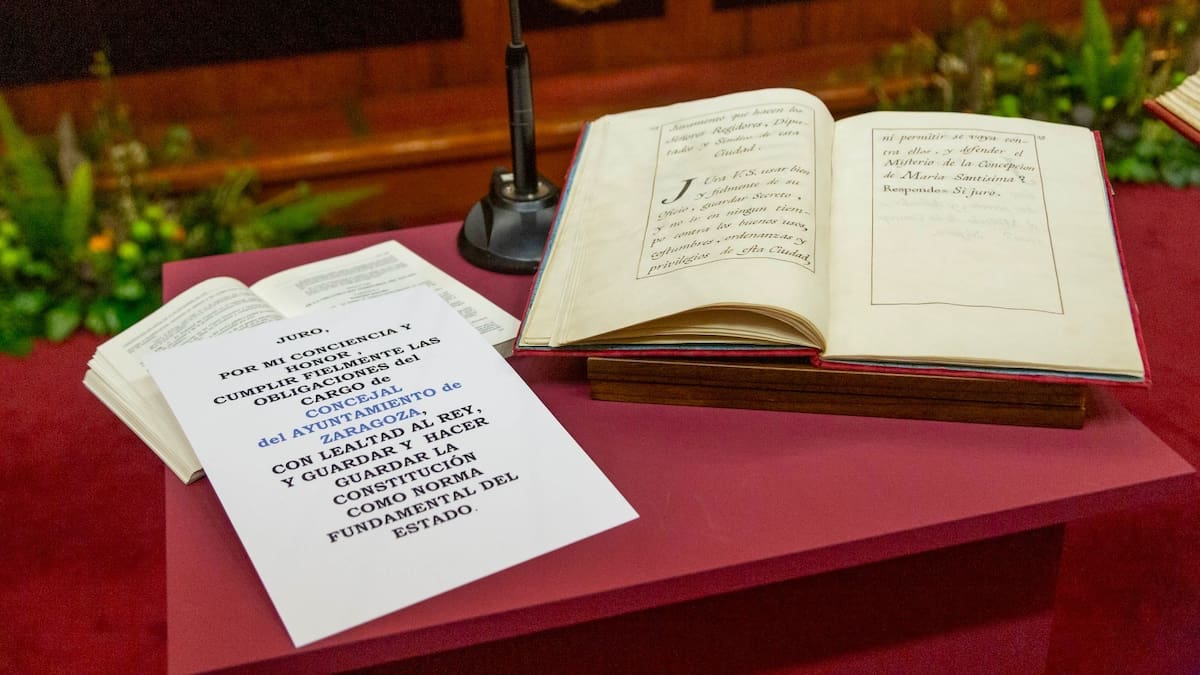 JURO,
POR MI CONCIENCIA Y
HONOR ,
CUMPLIR FIELMENTE LAS
OBLIGACIONES del
CARGO de
CONCEJAL
del AYUNTAMIENTO de
ZARAGOZA,
CON LEALTAD AL REY,
Y GUARDAR Y HACER
GUARDAR LA
CONSTITUCIÓN
COMO NORMA
FUNDAMENTAL DEL
ESTADO.
Juramento que hacen los
Señores Regidores, Dipu-
tados y Sindico de esta
Ciudad.
JUra V.S. usar bien
y fielmente de su
Oficio, guardar Secreto,
y no ir en ningun tiem-
po contra los buenos usos,
costumbres, ordenanzas y
privilegios de esta Ciudad,
ni permitir se vaya con-
tra ellos, y defender el
Misterio de la Concepcion
de Maria Santisima?
Responde= Si juro.